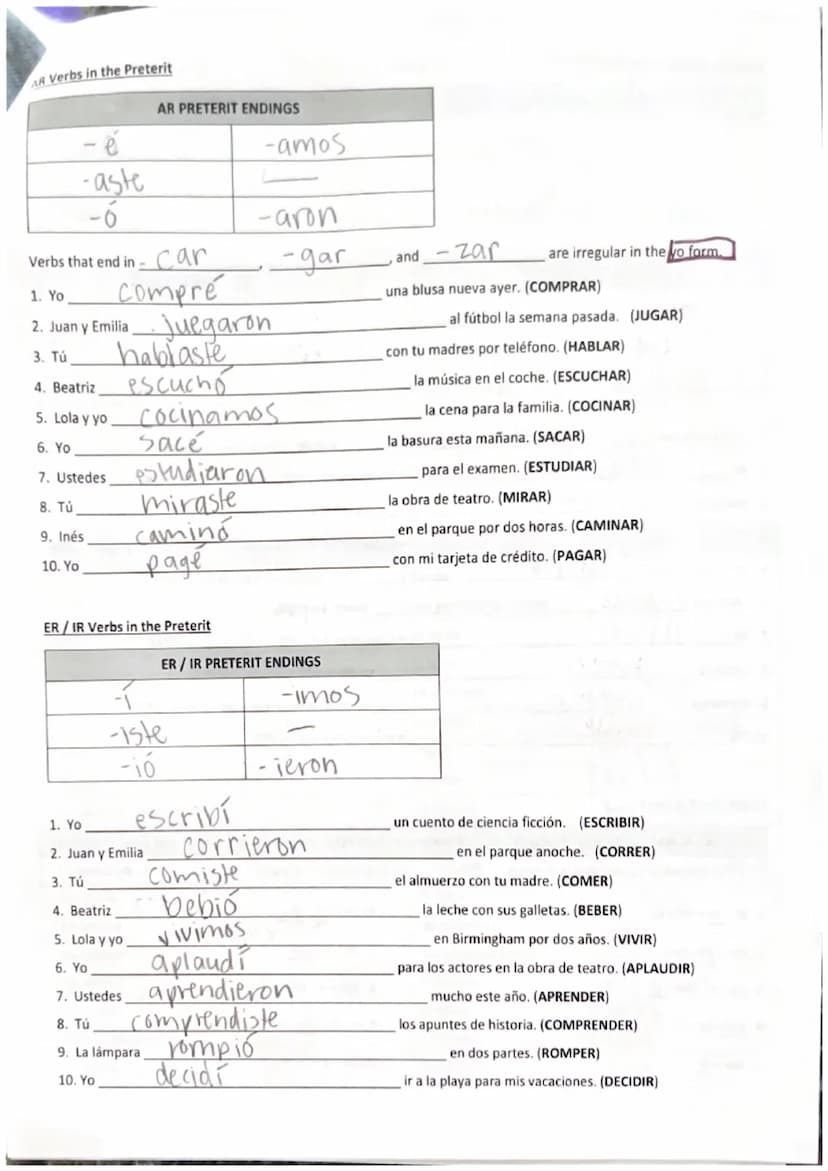 AR Verbs in the Preterit
AR PRETERIT ENDINGS
-é -amos
-aste —
-ó -aron
Verbs that end in -car, -gar, and -zar are irregular in the yo form.
1. Yo compré una blusa nueva ayer. (COMPRAR)
2. Juan y Emilia juegaron al fútbol la semana pasada. (JUGAR)
3. Tú hablaste con tu madres por teléfono. (HABLAR)
4. Beatriz escuchó la música en el coche. (ESCUCHAR)
5. Lola y yo cocinamos la cena para la familia. (COCINAR)
6. Yo sacé la basura esta mañana. (SACAR)
7. Ustedes estudiaron para el examen. (ESTUDIAR)
8. Tú miraste la obra de teatro. (MIRAR)
9. Inés caminó en el parque por dos horas. (CAMINAR)
10. Yo pagé con mi tarjeta de crédito. (PAGAR)
ER / IR Verbs in the Preterit
ER / IR PRETERIT ENDINGS
-í -imos
-iste —
-ió -ieron
1. Yo escribí un cuento de ciencia ficción. (ESCRIBIR)
2. Juan y Emilia corrieron en el parque anoche. (CORRER)
3. Tú comiste el almuerzo con tu madre. (COMER)
4. Beatriz bebió la leche con sus galletas. (BEBER)
5. Lola y yo vivimos en Birmingham por dos años. (VIVIR)
6. Yo aplaudí para los actores en la obra de teatro. (APLAUDIR)
7. Ustedes aprendieron mucho este año. (APRENDER)
8. Tú comprendiste los apuntes de historia. (COMPRENDER)
9. La lámpara rompió en dos partes. (ROMPER)
10. Yo decidí ir a la playa para mis vacaciones. (DECIDIR)